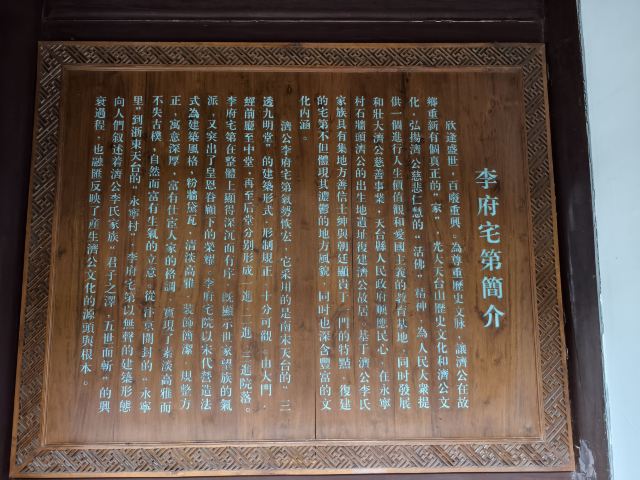 李府宅第簡介
欣逢盛世，百廢重興，為尊重歷史文脉，讓濟公在故
鄉重新有個真正的“家”，光大天台山歷史文化和濟公文
化，弘揚濟公慈悲仁慧的“活佛”精神，為人民大衆提
供一個進行人生價值觀和愛國主義的教育基地，同時發展
和壯大濟公慈善事業，天台縣人民政府順應民心，在永寧
村石墻頭濟公的出生地遺址復建濟公故居。基于濟公李氏
家族具有集地方善信士紳與朝廷顯貴于一門的特點，復建
的宅第不但體現其濃鬱的地方風貌，同时也深含豐富的文
化内涵。
濟公李府宅第氣勢恢宏，它采用的是南宋天台的“三
透九明堂”的建築形式，形制規正，十分可觀。由大門，
經前廳至中堂，再至后堂分别形成一進、二進、三進院落。
李府宅第在整體上顯得深沉而有序，既顯示世家望族的氣
派，又突出了皇恩眷顧下的榮耀。李府宅院以宋代營造法
式為建築風格，粉墻黛瓦，清淡高雅，装飾簡潔，規整方
正，寓意深厚，富有仕宦人家的格調，實現了素淡高雅而
不失古樸，自然而富有生氣的立意。從汴京開封的“永寧
里”到浙東天台的“永寧村”，李府宅第以無聲的建築形態
向人們叙述着濟公李氏家族“君子之澤，五世而斬”的興
衰過程，也融匯反映了産生濟公文化的源頭與根本。